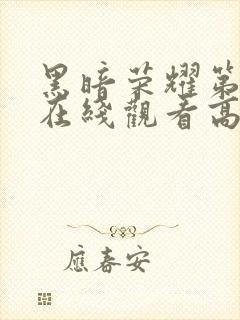 黑暗荣耀第
在线觀看高
應春安